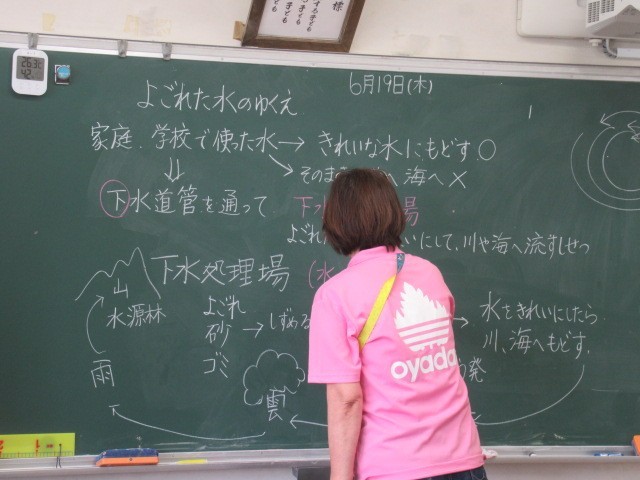 様
する子ども
子ども
子ども
6月19日(木)
よごれた水のゆくえ
家庭、学校で使った水→きれいな水にもどす○
へ 海へ×
下水道管を通って
下水
場
よごれ
いにして、川や海へ流すしせつ
下水処理場
(水
山
水源林
よごれ
砂
ゴミ
→しずめる
→水をきれいにしたら
川、海へもどす。
雨
雲
発
oyada